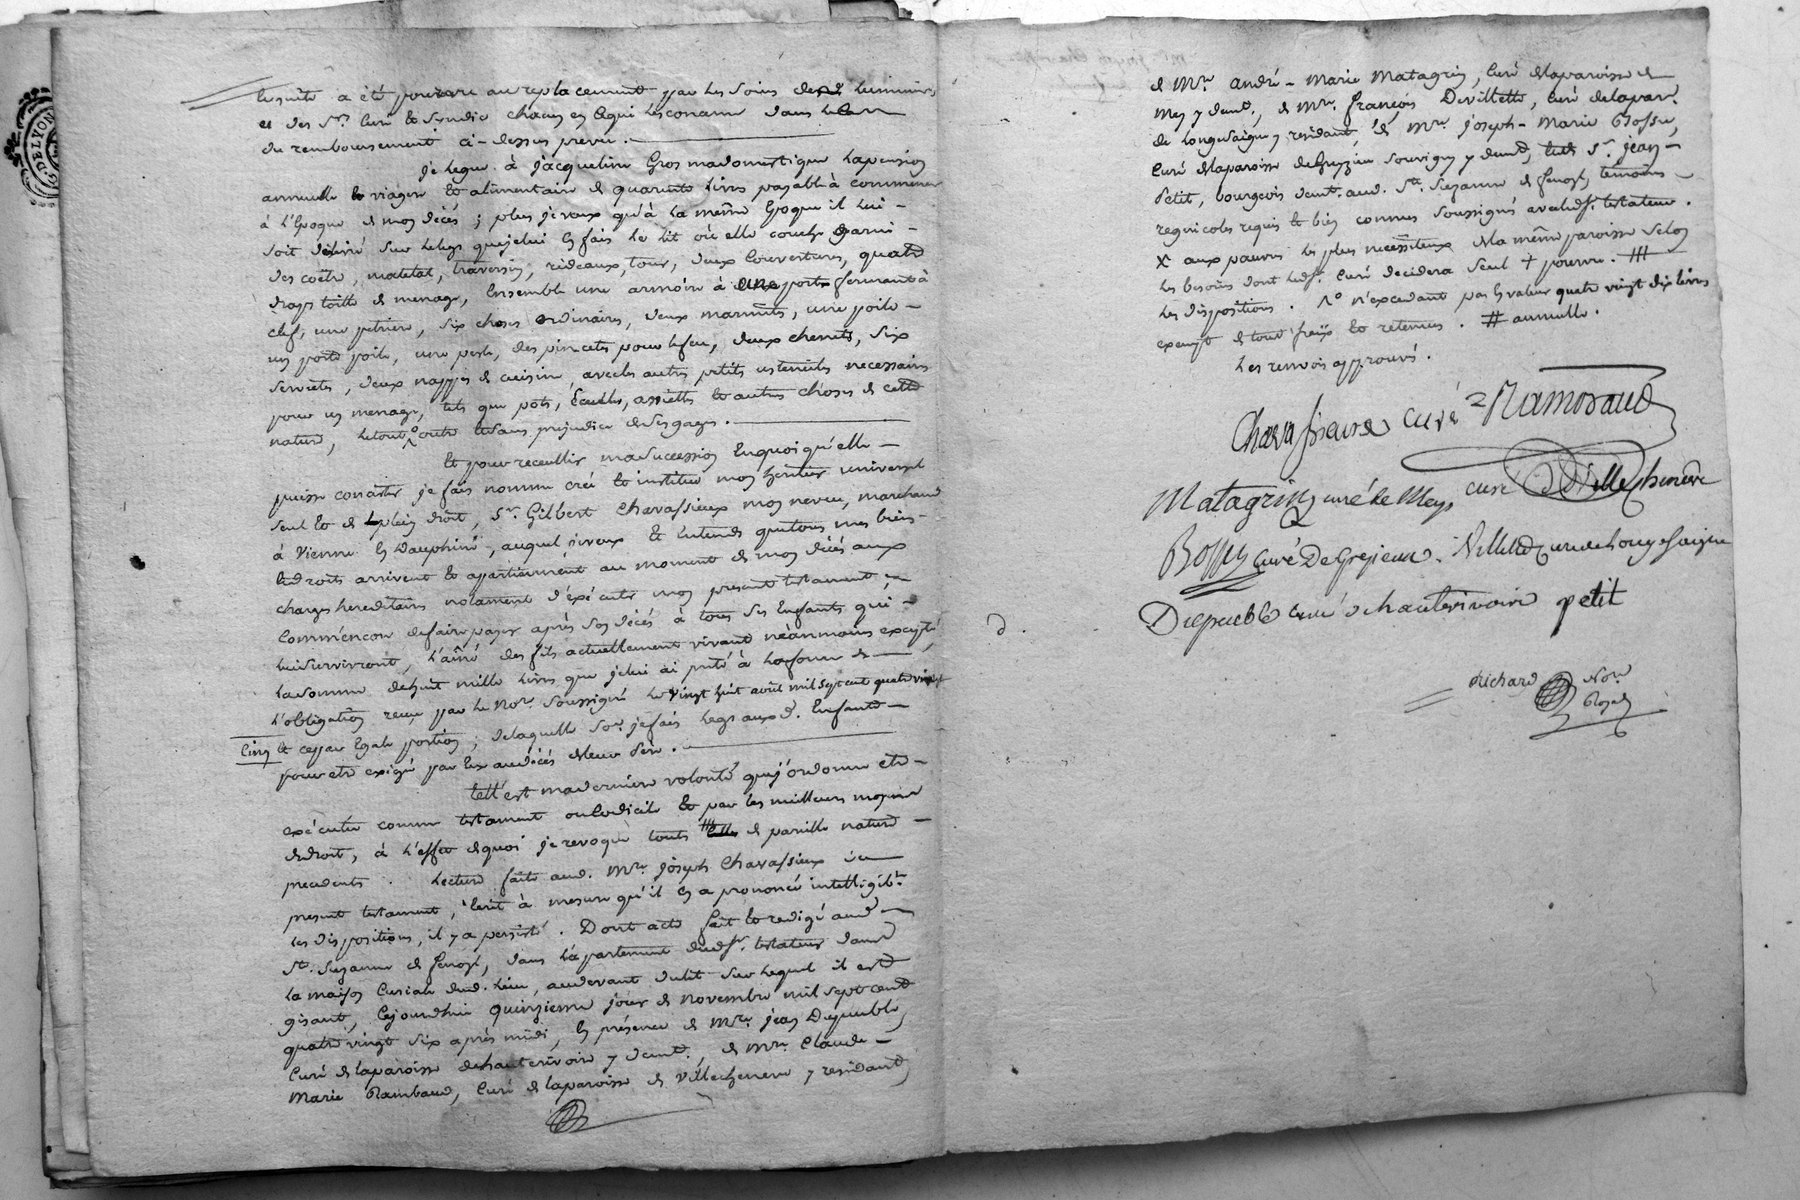 DE LYON
ensuite a été pourvu au replacement par les soins desd. luminier
et des Srs. Curé & Syndic chacun en ce qui les concerne dans le cas
du remboursement ci-dessus prevu.
Je legue à Jacqueline Gros ma domestique la pension
annuelle & viagere & alimentaire de quarante livres payable à commencer
à l'Epoque de mon décès ; plus je veux qu'à la même Epoque il lui
soit délivré sur le legs que je lui en fais le lit où elle couche garni
des coëtre, matelat, traversin, rideaux, tour, deux couvertures, quatre
draps toille de menage, Ensemble une armoire à une porte fermant à
clef, une petriere, six chaises ordinaires, deux marmites, une poile
un porte poile, une pesle, des pincettes pour le feu, deux chenets, six
serviettes, deux nappes de cuisine, avec les autres petits ustenciles necessaires
pour un menage, tels que pots, Ecuelles, assiettes & autres choses de cette
nature, le tout outre & sans prejudice de ses gages.
Et pour receuillir ma succession En quoi qu'elle
puisse consister je fais nomme créé & institue mon heritier universel
seul & de plein droit, Sr. Gilbert Chavassieux mon neveu, marchand
à Vienne En Dauphiné, auquel je veux & Entends que tous mes biens
& droits arrivent & appartiennent au moment de mon décès aux
charges hereditaires notament d'éxécuter mon present testament,
comm'encore de faire payer après son décès à tous ses Enfants qui
lui survivront, l'aîné des fils actuellement vivant néanmoins excepté,
la somme de huit mille livres que je lui ai preté à la forme de
l'obligation reçue par le Nore. soussigné le vingt huit avril mil sept cent quatre vingt
cinq & ce par Egale portion ; de laquelle some. je fais legs auxd. Enfants
pour etre exigée par Eux au décès de leur Père.
tell'est ma derniere volonté que j'ordonne etre
exécutée comme testament ou Codicile & par les meilleurs moyens
de droit, à l'effet de quoi je revoque touts # de pareille nature
precedents. Lecture faite aud. Mre. Joseph Chavassieux du
present testament, Ecrit à mesure qu'il En a prononcé intelligibt.
les dispositions, il y a persisté. Dont acte fait & redigé aud.
Ste. Suzanne de fenoyl, dans l'apartement dudsr. testateur dans
la maison Curiale dud. lieu, au devant du lit sur lequel il est
gisant, Cejourdhui quinzieme jour de novembre mil sept cent
quatre vingt six après midi, En présence de Mre. Jean Depueble,
Curé de la paroisse de hauterivoire y demt., de Mre. Claude
Marie Rambaud, Curé de la paroisse de Villecheneve y residant,
de Mre. André-Marie Matagrin, Curé de la paroisse de
Mey y demt., de Mre. françois Devillette, Curé de la par.
de longesaigne y residant, de Mre. Joseph-Marie Bossu,
Curé de la paroisse de Grezieu Souvigny y demt., & de Sr. Jean
Petit, bourgeois demt. aud. Ste. Suzanne de fenoyl, temoins
regnicoles requis & bien connus soussignés avec ledsr. testateur.
X aux pauvres les plus necessiteux de la même paroisse selon
les besoins dont ledsr. Curé decidera seul + pourvu. #
les dispositions. n'excedant pas En valeur quatre vingt dix livres
exempt de tout fraix & retenues. # annuelle.
Les renvois approuvés.
Chavassieux curé Ramboud
Matagrin curé de Meys curé de Villecheneve
Bossu curé De Grezieux. Villette curé de Longesaigne
Depueble curé de hauterivoire petit
Richard Nore.
Royal